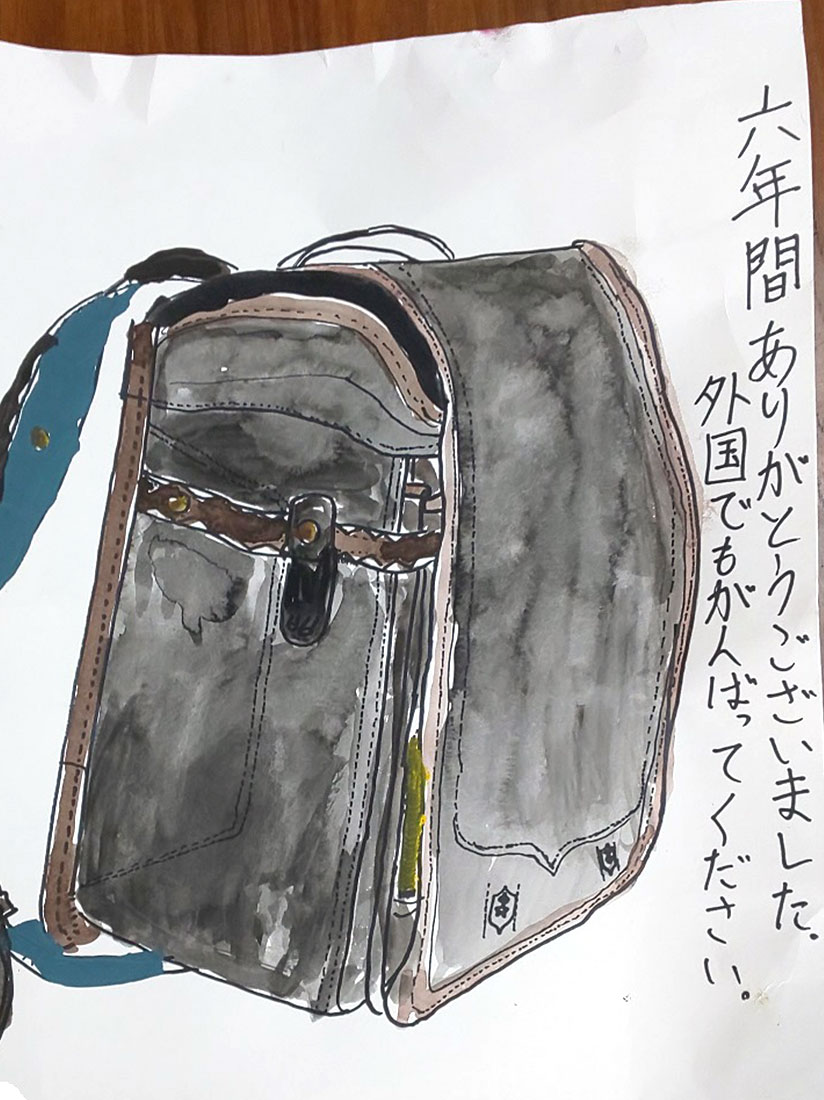 六年間ありがとうございました.
外国でもがんばってください。